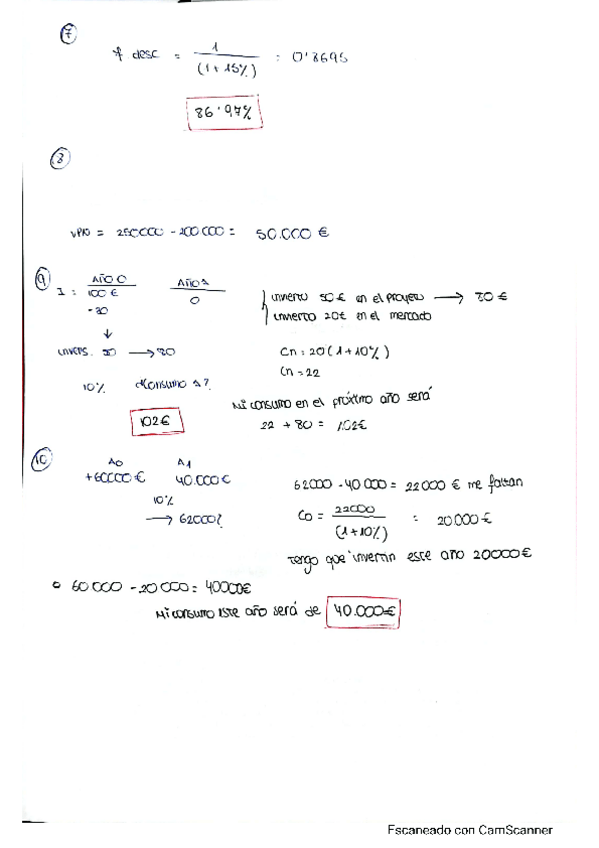 7
f desc = 1 / (1+15%) = 0'8695
86'97%
8
VAN = 250000 - 200000 = 50.000 €
9
AÑO 0 AÑO 1
I: 100 € 0
-30
↓
→ 80
10% Consumo 1?
102€
Invierto 20€ en el mercado
Cn = 20(1+10%)
Cn = 22
Mi consumo en el próximo año será
22 + 80 = 102€
10
A0 A1
+60000€ 40.000€
10%
→ 62000?
62000 - 40000 = 22000 € me faltan
C0 = 22000 / (1+10%) = 20000€
Tengo que invertir este año 20000€
60000 - 20000 = 40000€
Mi consumo este año será de 40.000€
Escaneado con CamScanner